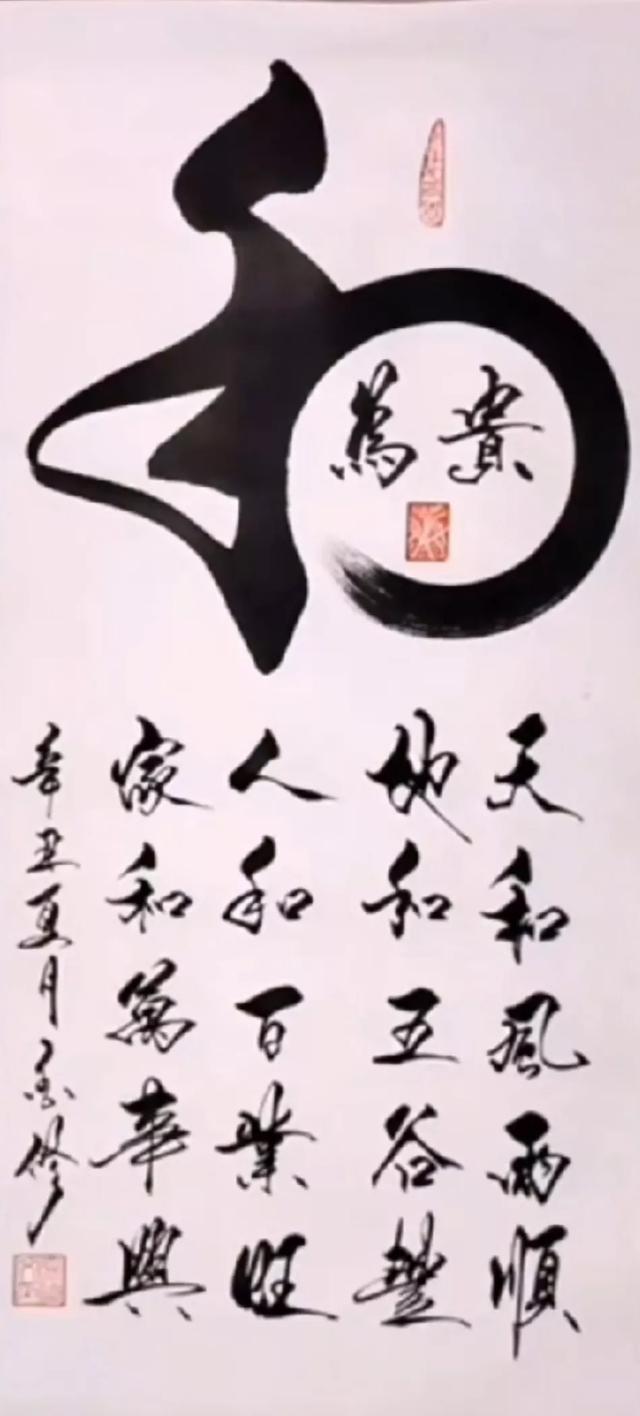 和
為貴
天和風雨順
地和五谷豐
人和百業旺
家和萬事興
辛丑夏月